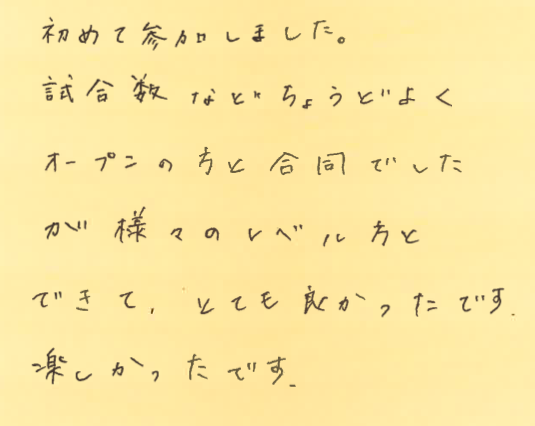 初めて参加しました。
試合数などちょうどよく
オープンの方と合同でした
が様々のレベル方と
できて、とても良かったです.
楽しかったです.